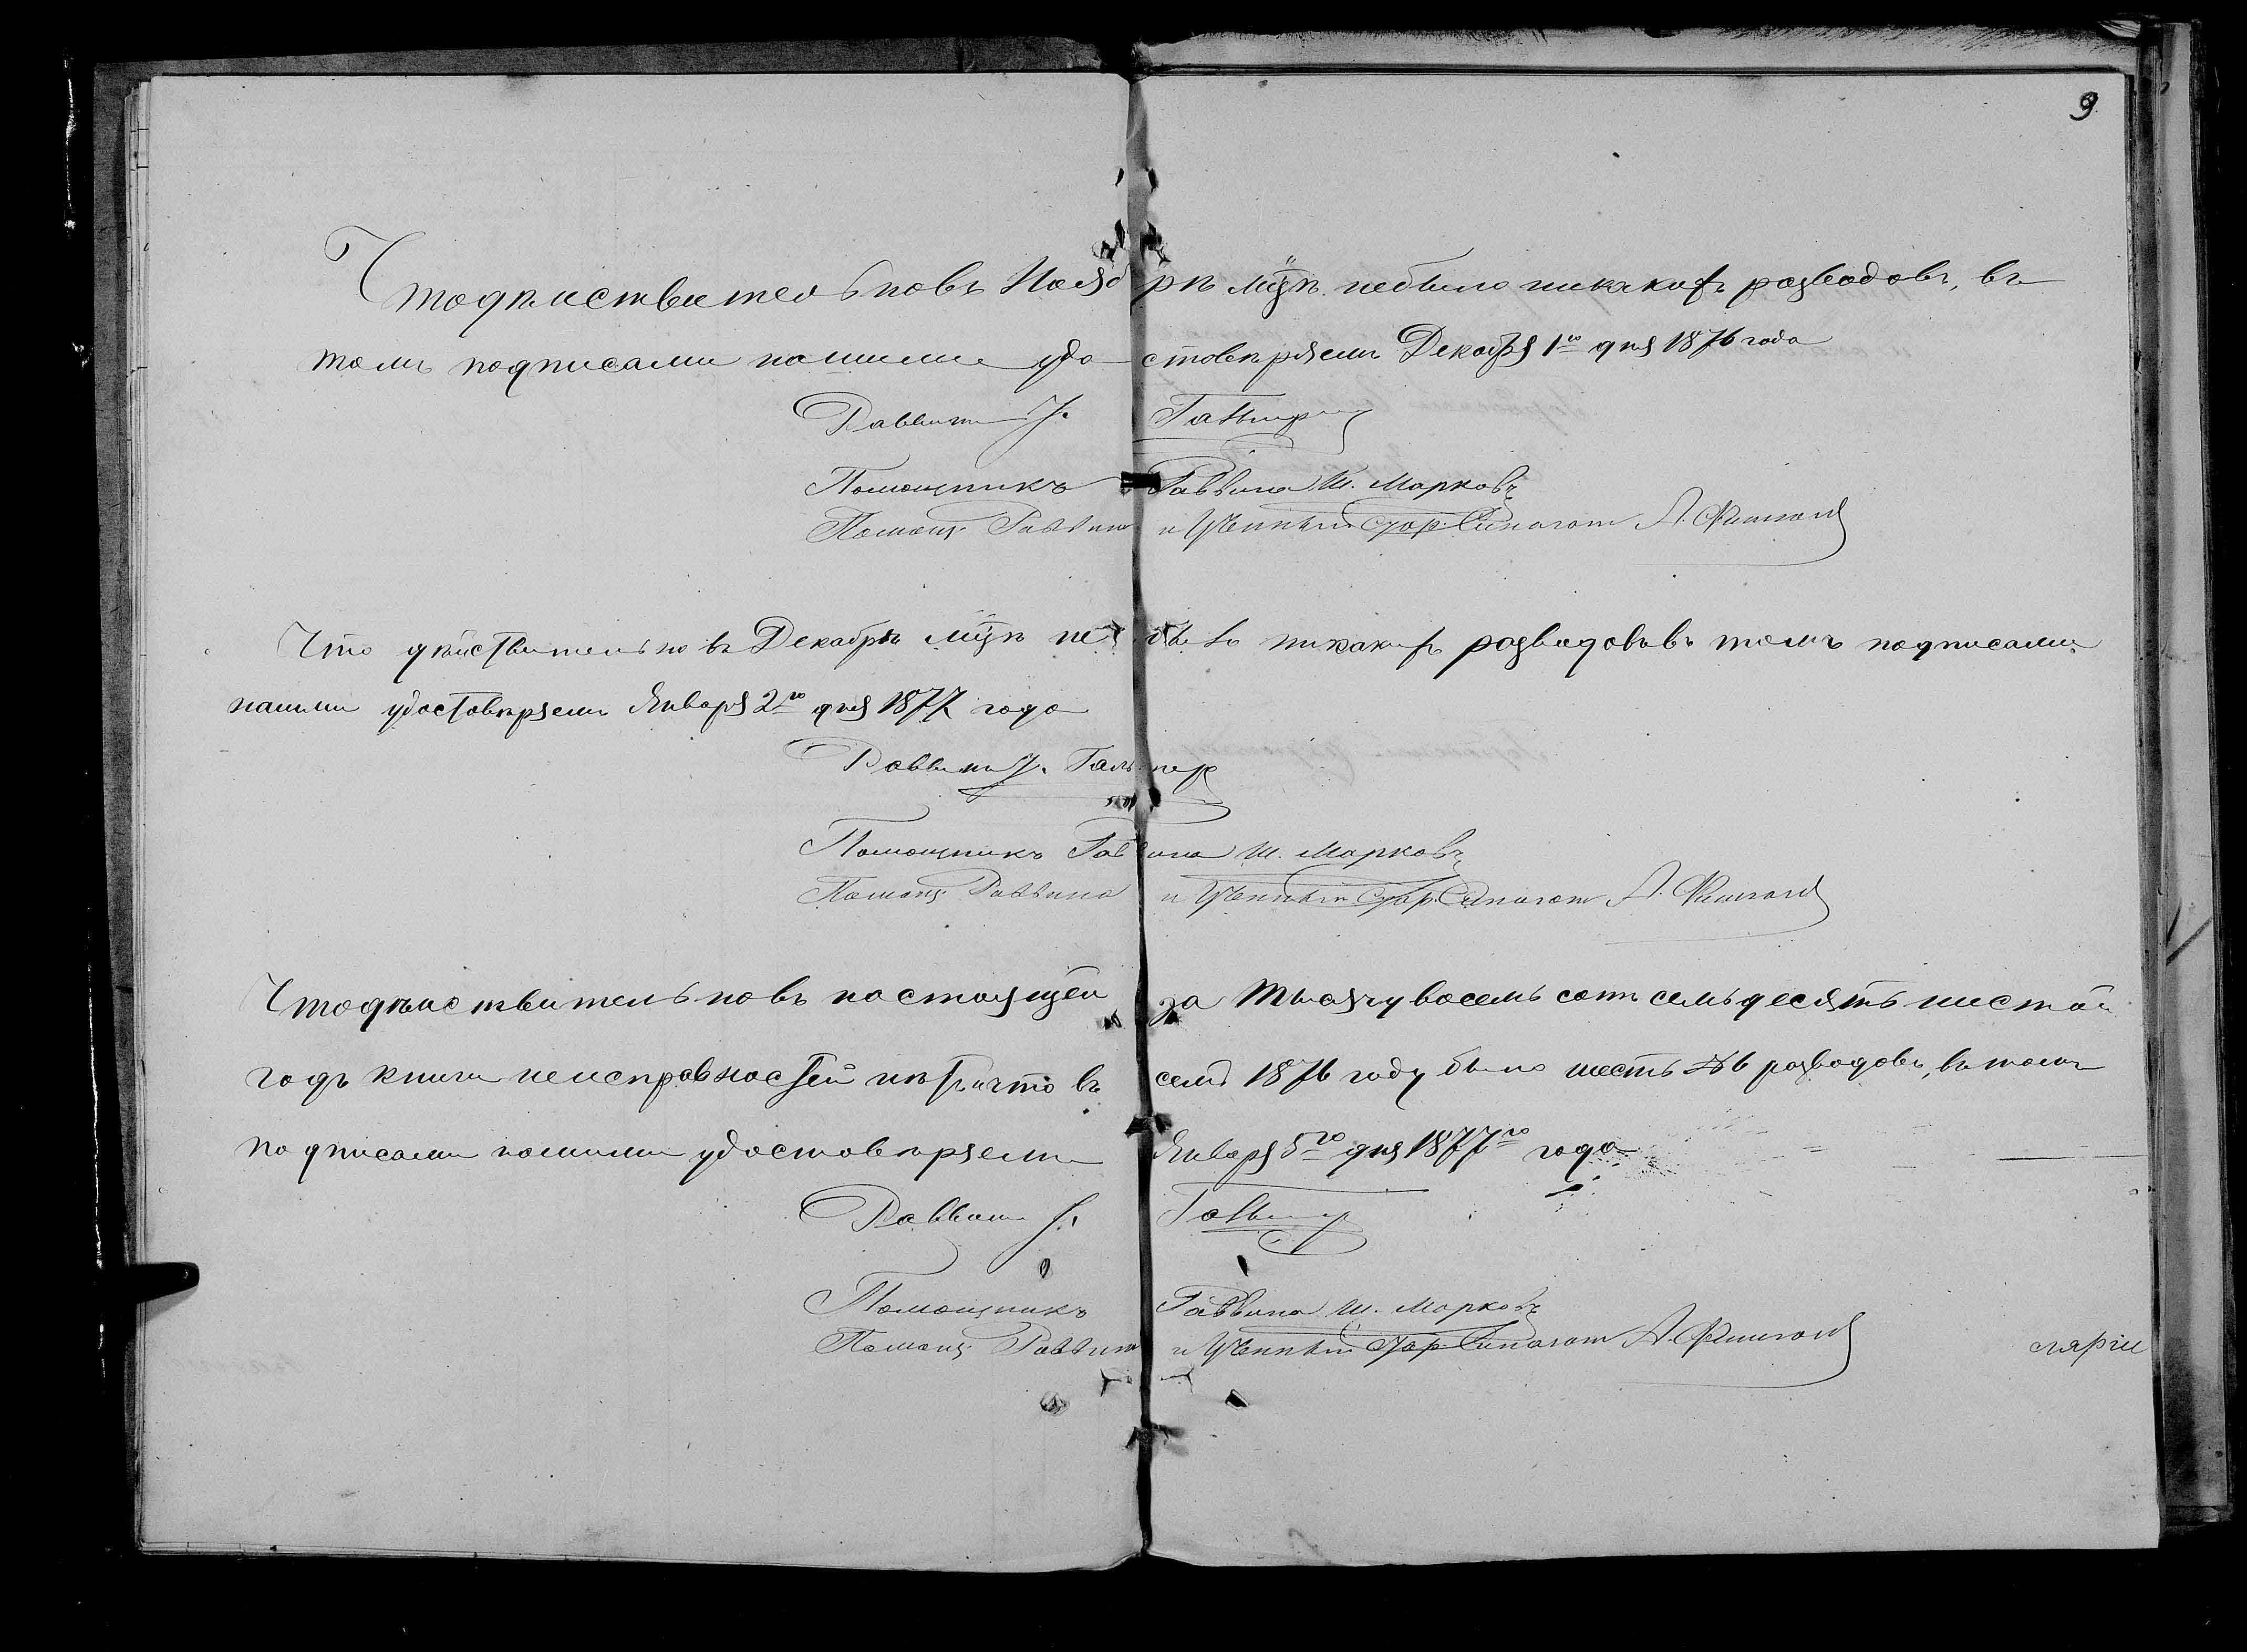 9
Что дѣйствительно въ Ноябрѣ м҃цѣ небыло никакихъ разводовъ, въ
томъ подписами нашими удостовѣряемъ Декабря 1го дня 1876 года
Раввинъ
Помощникъ Раввина Ш. Марковъ
Помощ. Раввина и Ученный Стар. Синагог А. Фишгойт
Что дѣйствительно въ Декабрѣ м҃цѣ не было никакихъ разводовъ въ томъ подписами
нашими удостовѣряемъ Января 2го дня 1877 года
Раввинъ Гальпер
Помощникъ Раввина Ш. Марковъ
Помощ Раввина и Ученный Стар. Синагог А.
Что дѣйствительно въ настоящей за тысячу восемь сотъ семьдесять шестой
годъ книги неисправностей нѣтъ и что въ семъ 1876 году было шесть № 6 разводовъ, въ томъ
подписами нашими удостовѣряемъ Января 5го дня 1877го года
Раввинъ
Помощникъ Раввина Ш. Марковъ
Помощ. Раввина и Ученный Стар. Синагог А.